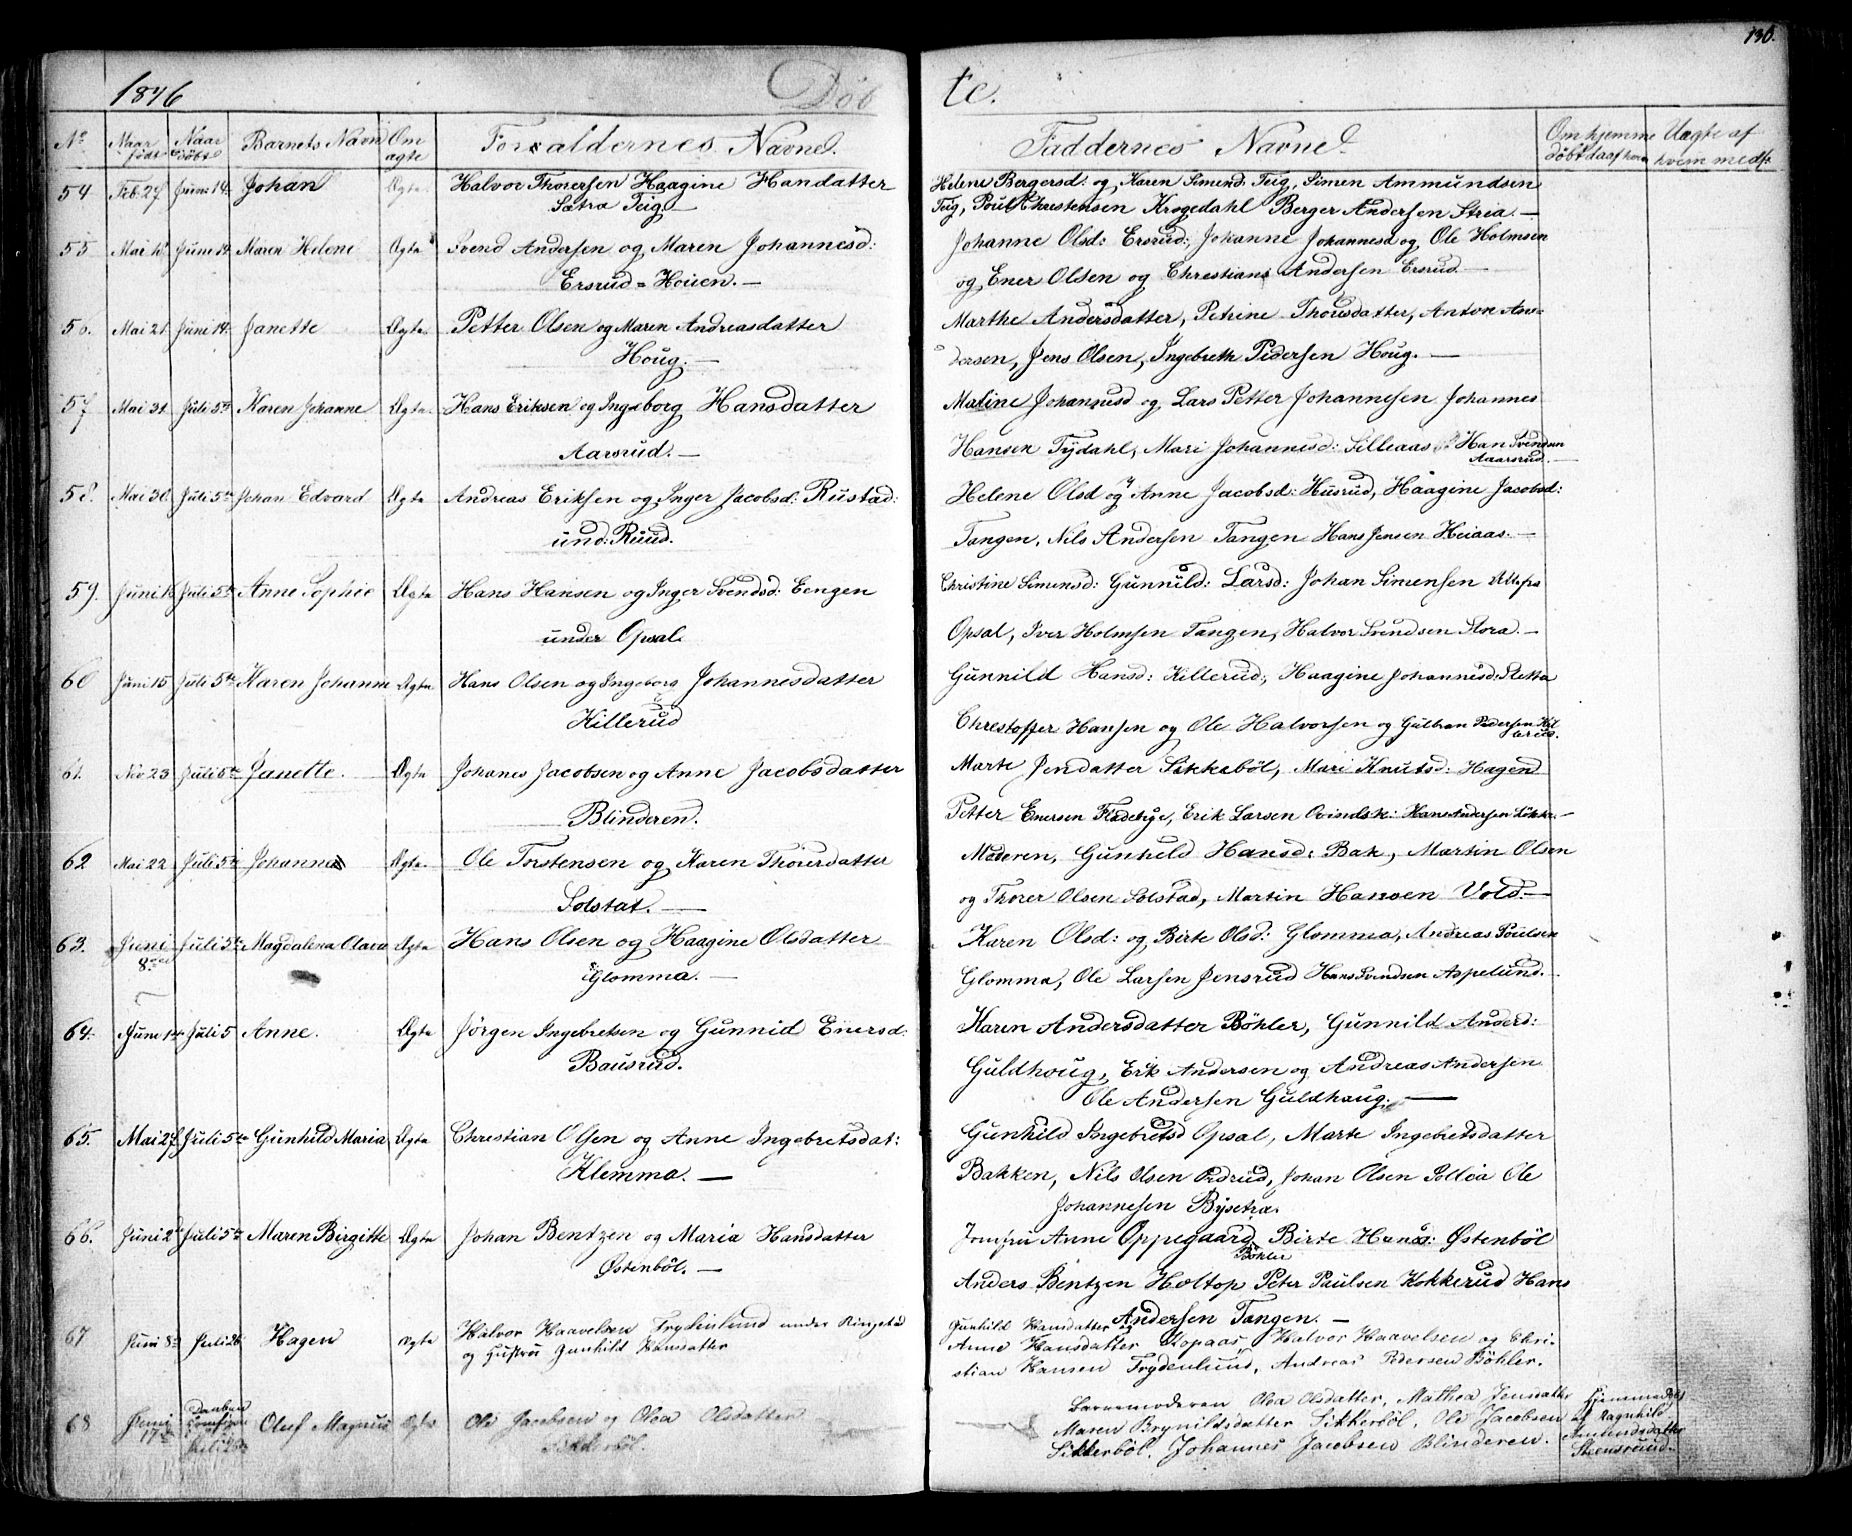 130.
1846 Döbte.
No Naar födt Naar döbt Barnets Navn Om ægte Forældernes Navne. Faddernes Navne. Om hjemme döbt da af hvem Uægte af hvem medf:
54 Feb. 27 Juni 14. Johan Ægte. Halvor Thorersen Haagine Handatter Helene Bergersd: og Karen Simend. Teig, Simen Ammundsen
Sætra Teig.— Teig, Poul Chrestensen Krogedahl Berger Andersen Stria.—
55 Mai Juni 14. Maren Helene Ægte Svend Andersen og Maren Johannesd: Johanne Olsd: Ersrud; Johanne Johannesd og Ole Holmsen
Ersrud = Houen.— og Ener Olsen og Chrestian Andersen Ersrud—
Mai 21. Juni 14. Janette Ægte. Petter Olsen og Maren Andreasdatter Marthe Andersdatter, Petrine Thorsdatter, Anton An-
Houg.— dersen, Jens Olsen, Ingebreth Pedersen Houg.—
57 Mai 31. Juli 5te Karen Johanne Ægte. Hans Eriksen og Ingeborg Hansdatter Maline Johannesd og Lars Petter Johannesen Johannes
Aarsrud.— Hansen Tydahl, Mari Johannesd: Silleaas Han Svendsen
Aaarsrud.—
58. Mai 30. Juli 5te Johan Edvard Ægte Andreas Eriksen og Inger Jacobsd: Rustad: Helene Olsd og Anne Jacobsd: Husrud, Haagine Jacobsd:
und: Ruud. Tangen, Nils Andersen Tangen Hans Jensen Heiaas.—
59. Juni 16 Juli 5te Anne Sophie Ægte Hans Hansen og Inger Svendsd: Eengen Christine Simensd: Gunnild: Larsd: Johan Simensen Alle fra
under Opsal. Opsal, Iver Holmsen Tangen, Halvor Svendsen Stora.—
60 Juni 15 Juli 5te Karen Johanne Ægte. Hans Olsen og Ingeborg Johannesdatter Gunnild Hansd: Killerud; Haagine Johannesd: Sletta
Killerud Chrestoffer Hansen og Ole Halvorsen og Gulbran Pedersen Kil
lerud.
61. No 23 Juli 5te Janette. Ægte Johanes Jacobsen og Anne Jacobsdatter Marte Jensdatter Sikkeböl, Mari Knutsd: Hagen
Blinderen. Petter Enersen Fladebye, Erik Larsen Ovindsk: Hans Andersen Lökke.—
62 Mai 22 Juli 5te Johanne Ægte. Ole Torstensen og Karen Thorerdatter Moderen, Gunhild Hansd: Bak, Martin Olsen
Solstat.— og Thorer Olsen Solstad, Martin Hansen Vold.—
63. Juni Juli 5te Magdalena Olava Ægte Hans Olsen og Haagine Olsdatter Karen Olsd: og Birte Olsd: Glomma, Andreas Poulsen
8 Glomma.— Glomma, Ole Larsen Jensrud Hans Svendsen Aspelund.—
64. Juni 14 Juli 5 Anne. Ægte Jörgen Ingebretsen og Gunnid Enersd: Karen Andersdatter Böhler, Gunnild Andersd:
Bausrud. Guldhoug, Erik Andersen og Andreas Andersen
Ole Andersen Guldhaug.—
65. Mai 27 Juli 5te Gunhild Maria Ægte Christian Olsen og Anne Ingebretsdat: Gunhild Ingebretsd Opsal, Marte Ingebretsdatter
Klemma.— Bakken, Nils Olsen Pedrud, Johan Olsen Solloa Ole
Johannesen Bysetra.
66. Juni 2 Juli 5te Maren Birgitte Ægte Johan Bentzen og Maria Hansdatter Jomfru Anne Oppegaard Birte Hansd: Østenböl
Böhler
Østenböl.— Anders Bentzen Holtop Peter Paulsen Kokkerud Hans
Andersen Tangen.—
67 Juni 8 Juli 26 Hagen Ægte Halvor Haavelsen Frydenlund under Ringstad Gunhild Hansdatter og
og Hustroe Gunhild Hansdatter Anne Hansdatter Kopaas Halvor Haavelsen og Chri-
stian Hansen Frydenlund, Andreas Pedersen Böhler.
68 Juni 17 Daaben Oluf Magnus Ægte Ole Jacobsen og Oloa Olsdatter Barnemoderen Oloa Olsdatter, Mathea Jensdatter Hjemmedöbt
Sikkerböl. Maren Brynildsdatter Sikkerböl, Ole Jacobsen af Ragnhild
Sikkerböl. Johannes Jacobsen Blinderen. Amundsdatter
Steensrud.